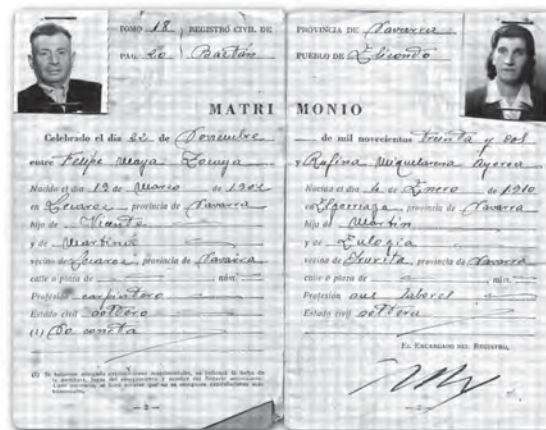 TOMO 18 REGISTRO CIVIL DE
PAG. 20 Baztán
MATRI
Celebrado el día 22 de Noviembre
entre Felipe Maya Zozaya
Nacido el día 19 de Marzo de 1902
en Lecaroz provincia de Navarra
hijo de Vicente
y de Martina
vecino de Lecaroz, provincia de Navarra
calle o plaza de núm.
Profesión carpintero
Estado civil soltero
(1) No consta
— 2 —
PROVINCIA DE Navarra
PUEBLO DE Elizondo
MONIO
de mil novecientos treinta y dos
y Rufina Miquelarena
Nacida el día 4 de Enero de 1910
en Elgorriaga provincia de Navarra
hija de Martín
y de Eulogia
vecina de provincia de Navarra
calle o plaza de núm.
Profesión sus labores
Estado civil soltera
EL ENCARGADO DEL REGISTRO,